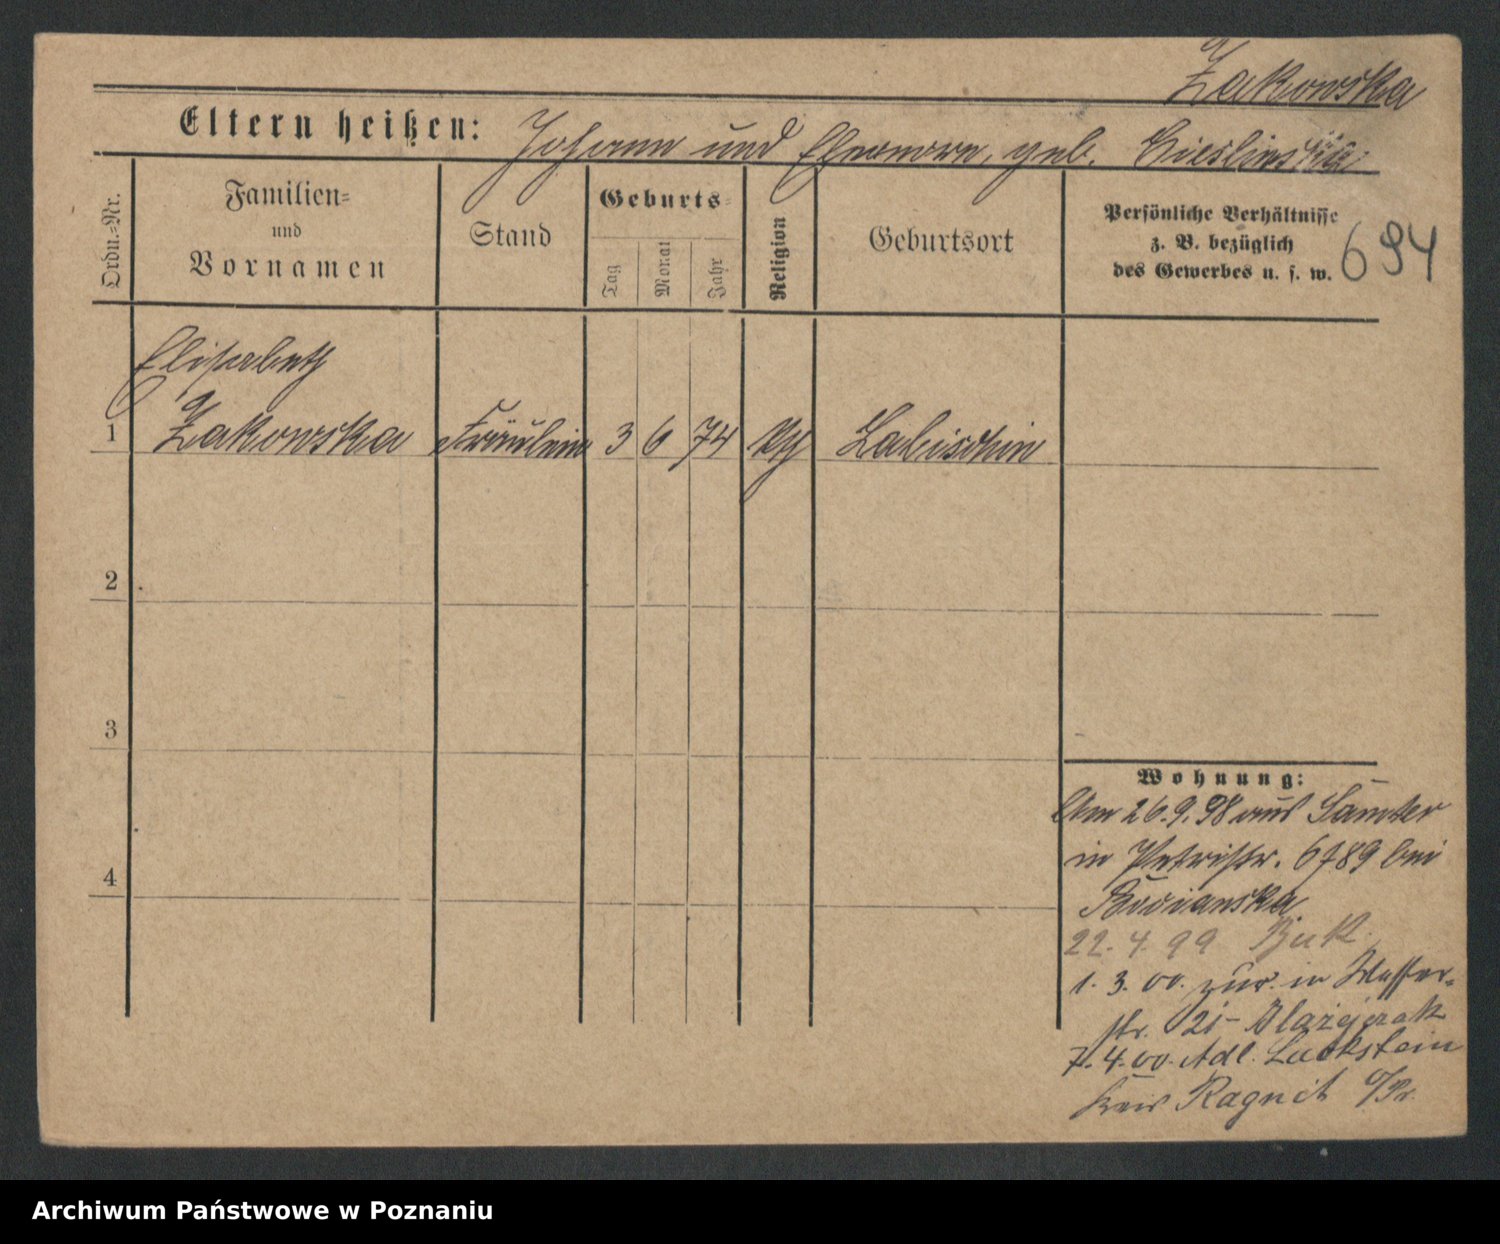 Żakowska
Eltern heißen: Johann und Eleonore, geb. Cieslinska
Ordn.-Nr.
Familien-
und
Vornamen
Stand
Geburts-
Tag
Monat
Jahr
Religion
Geburtsort
Persönliche Verhältnisse
z. B. bezüglich
des Gewerbes u. s. w.
694
Elisabeth
1 Żakowska Fräulein 3 6 74 kth Labischin
2
3
4
Wohnung:
Am 26.9.98 aus Samter
in Petristr. 6 bei
22.4.99 Buk
1.3.00. zur. in Wasser-
str. 21 - Błażejczak
7.4.00. Adl. Lackstein
Kreis Ragnit O/Pr.
Archiwum Państwowe w Poznaniu